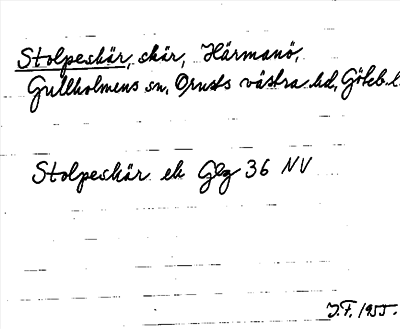 Stolpeskär, skär, Härmanö,
Gullholmens sn, Orusts västra hd, Göteb. l.
Stolpeskär ek Glg 36 NV
J.F. 1955.